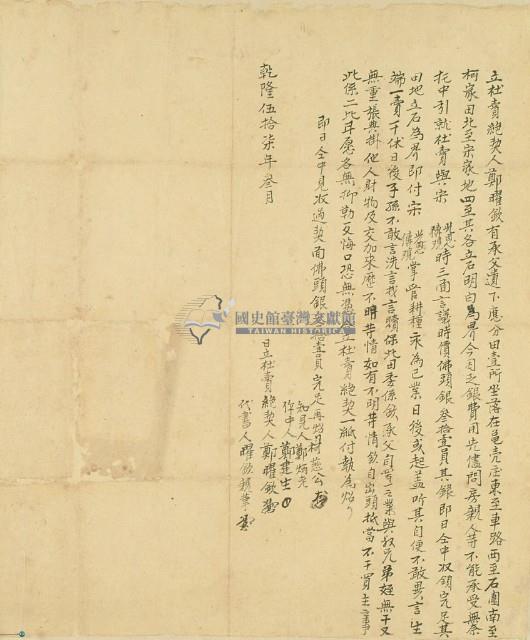 立杜賣絕契人鄭曜欽有承父遺下應分田壹所坐落在龜壳庄東至車路西至石圍南至
柯家田北至宋家地四至其各立石明白為界今因乏銀費用先儘問房親人等不能承受無奈
托中引就杜賣與宋 時三面言議時價佛頭銀叁拾壹員其銀即日仝中收領完足其
田地立石為界即付宋 掌管耕種永為己業日後或起盖听其自便不敢異言生
端一賣千休日後子孫不敢言洗言找言贖保此田委係欽承父自等之業與叔兄弟姪無干又
無重張典掛他人財物及交加來歷不明等情如有不明等情欽自出頭抵當不干買主之事
此係二比甘愿各無抑勒反悔口恐無憑立杜賣絕契一紙付執為炤
即日仝中見收過契面佛頭銀叁拾壹員完足再炤
知見人鄭炳光
作中人鄭建生
乾隆伍拾柒年叁月 日立杜賣絕契人鄭曜欽
代書人曜欽親筆
國史館臺灣文獻館
TAIWAN HISTORICA